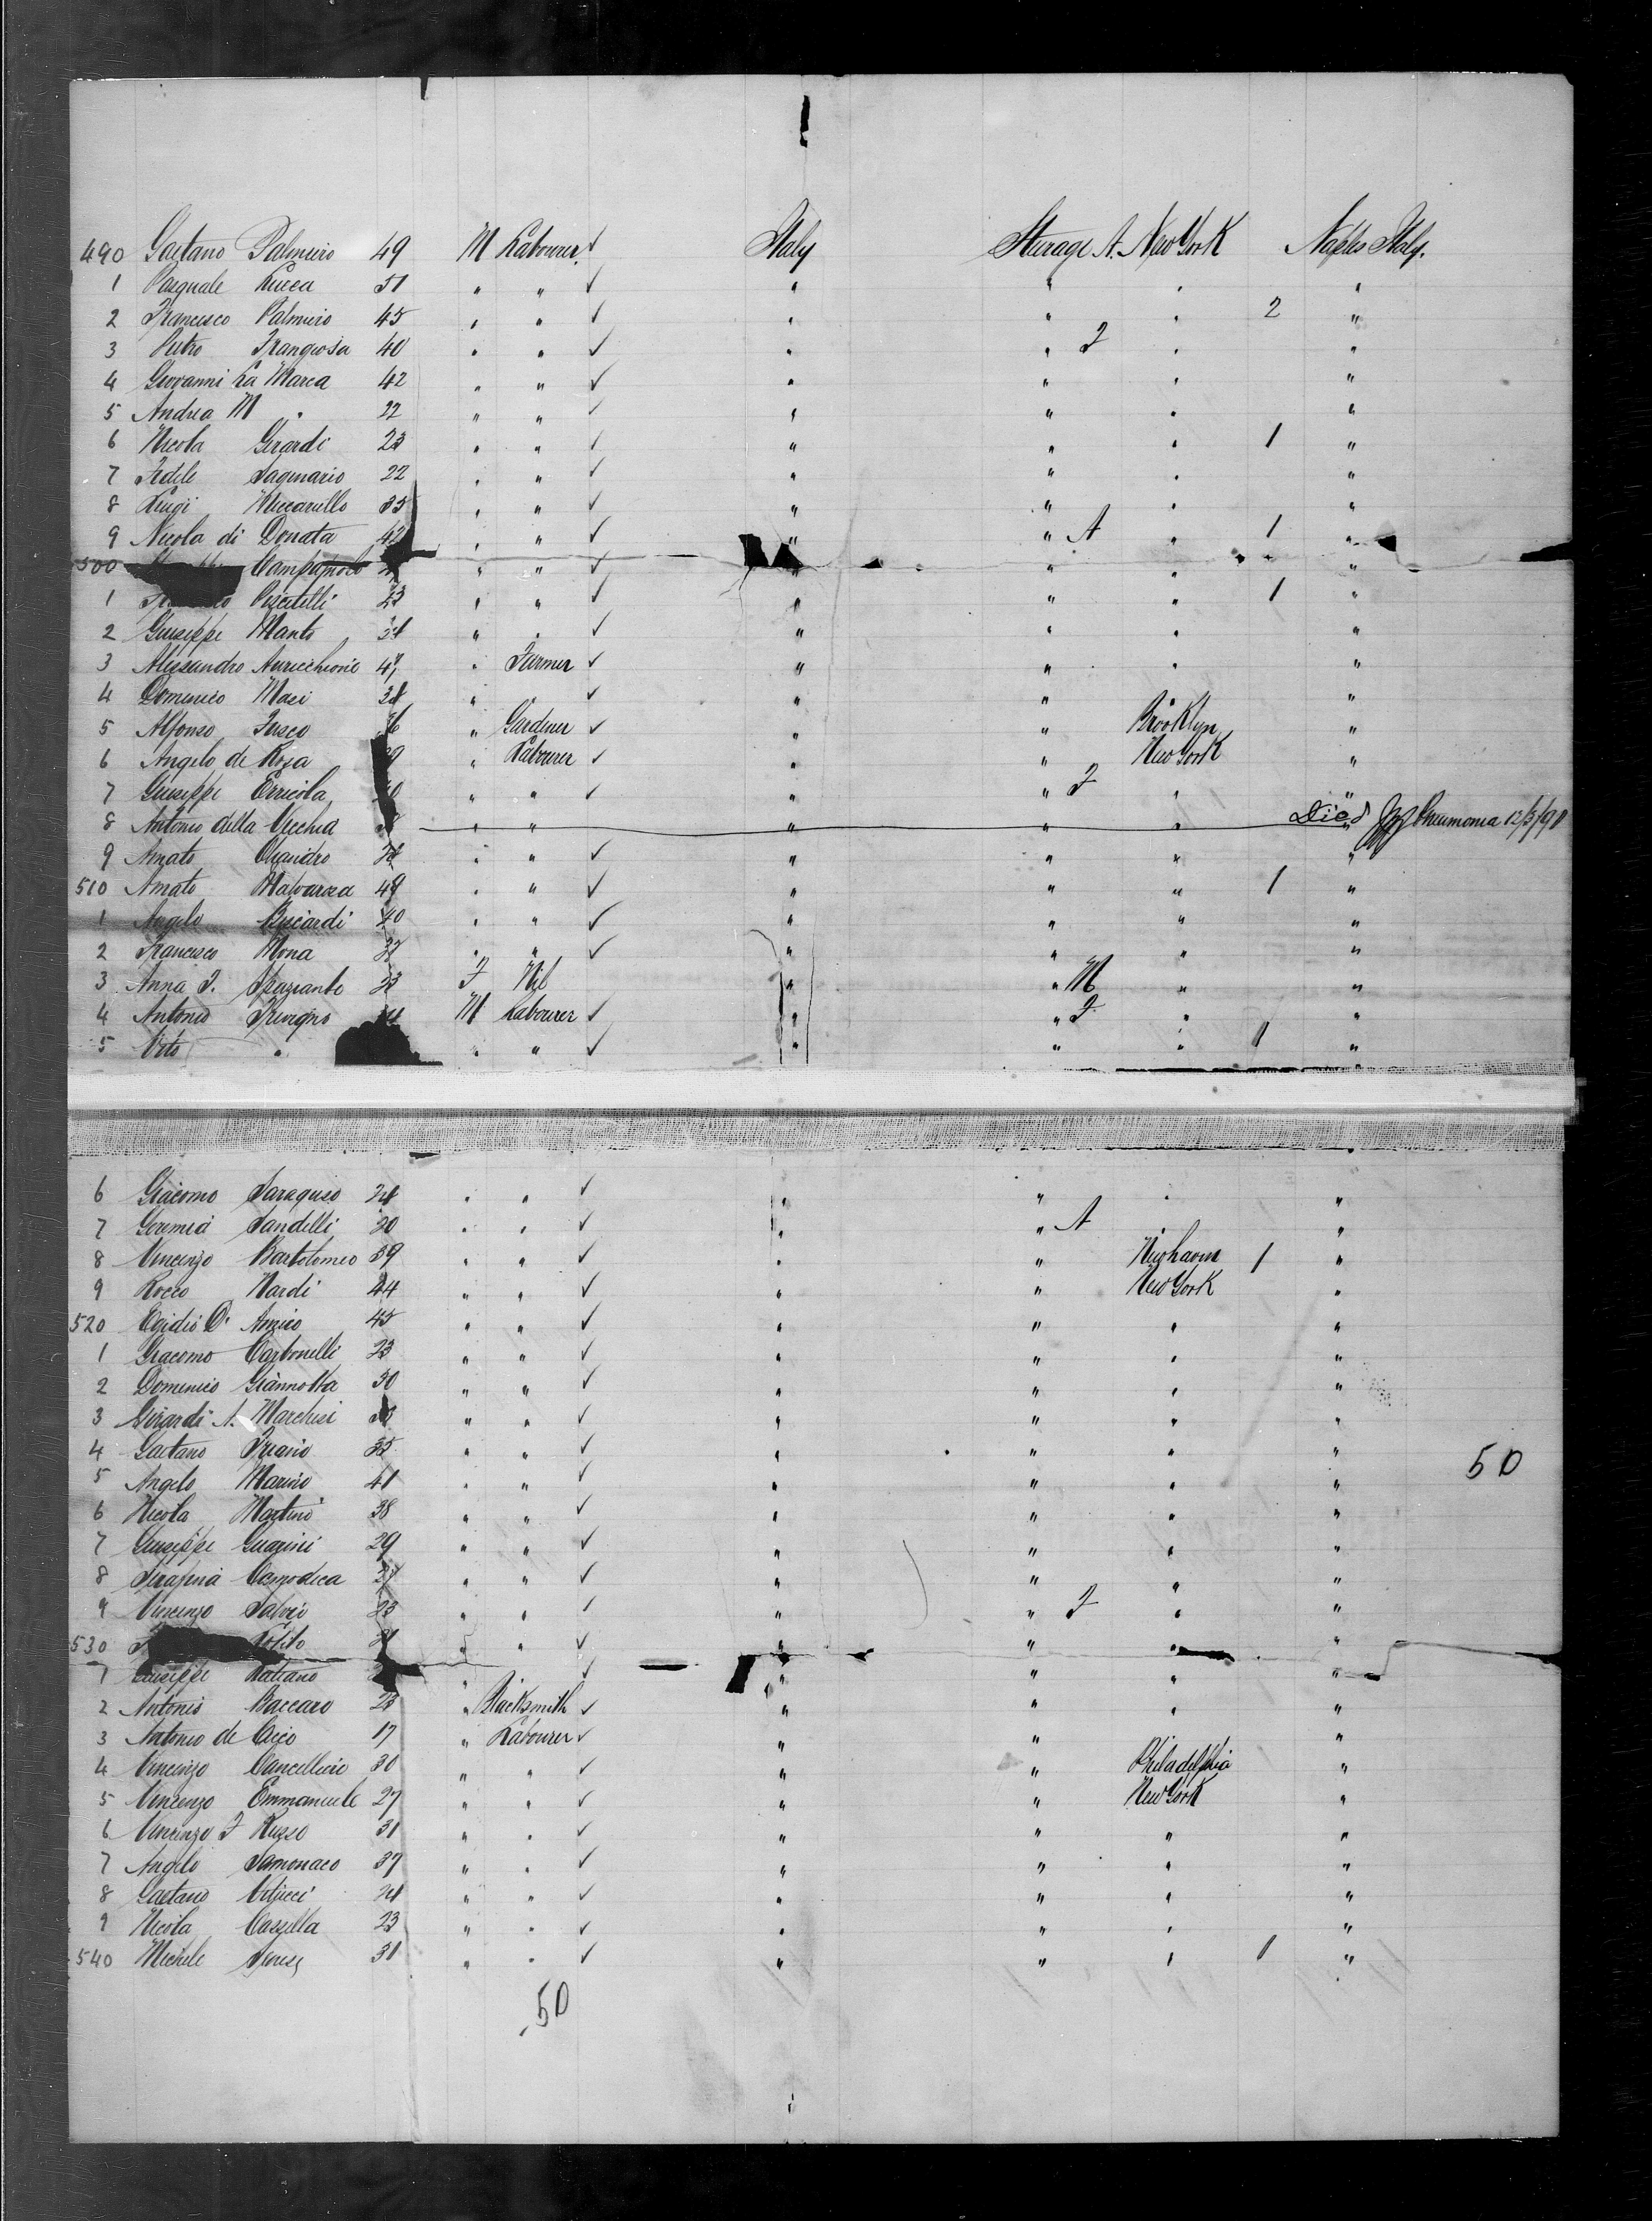 490 Gaetano Palmiero 49 M Labourer ✓ Italy Sterage A. New York Naples Italy.
1 Pasquale Lucca 51 " " ✓ " " " "
2 Francesco Palmiero 45 " " ✓ " " " 2 "
3 Pietro Frangiosa 40 " " ✓ " " F " "
4 Giovanni La Marca 42 " " ✓ " " " "
5 Andrea M " 22 " " ✓ " " " "
6 Nicola Girardi 23 " " ✓ " " " 1 "
7 Fidele Saginario 22 " " ✓ " " " "
8 Luigi 35 " " ✓ " " " "
9 Nicola di Donata 42 " " ✓ " " A " 1 "
500 Campagnolo " " ✓ " " " "
1 Piscitelli 23 " " ✓ " " " 1 "
2 Giuseppe Manto " " ✓ " " " "
3 Alessandro Auricchione 47 " Farmer ✓ " " " "
4 Domenico Masi " ✓ " " " "
5 Alfonso Fusco " Gardener ✓ " " Brooklyn "
6 Angelo de Rosa " Labourer ✓ " " New York "
7 Giuseppe Erricola " " ✓ " " F " "
8 Antonio della Vecchia " " " " " Died Pneumonia 12/3/91
9 Amato " " ✓ " " " "
510 Amato 49 " " ✓ " " " 1 "
1 Angelo Ricciardi 40 " " ✓ " " " "
2 Francesco Mona " " ✓ " " " "
3 Anna F. 23 F Nil " " M " "
4 Antonio M Labourer ✓ " " F " "
5 Vito " " " ✓ " " " 1 "
6 Giacomo Saraguso 24 " " ✓ " " " "
7 Geremia Sandelli 20 " " ✓ " " A " "
8 Vincenzo Bartolomeo 39 " " ✓ " " Newhaven 1 "
9 Rocco Nardi 44 " " ✓ " " New York "
520 Egidio D' Amico 45 " " ✓ " " " "
1 Giacomo Carbonelli 23 " " ✓ " " " "
2 Domenico Giannotta 30 " " ✓ " " " "
3 Girardi A. Marchesi " " ✓ " " " "
4 Gaetano 35 " " ✓ " " " "
5 Angelo Marino 41 " " ✓ " " " " 50
6 Nicola Martino 38 " " ✓ " " " "
7 Giuseppe Guarini 29 " " ✓ " " " "
8 Serafina " " ✓ " " " "
9 Vincenzo Salvio 23 " " ✓ " " F " "
530 " " ✓ " " " "
1 Giuseppe " " ✓ " " " "
2 Antonio Baccaro 23 " Blacksmith ✓ " " " "
3 Antonio de Cicco 17 " Labourer ✓ " " " "
4 Vincenzo Cancelliere 30 " " ✓ " " Philadelphia "
5 Vincenzo Emmanuele 27 " " ✓ " " New York "
6 Vincenzo F Russo 31 " " ✓ " " " "
7 Angelo Samonaco 37 " " ✓ " " " "
8 Gaetano 24 " " ✓ " " " "
9 Nicola Cassella 23 " " ✓ " " " "
540 Michele 31 " " ✓ " " " 1 "
50